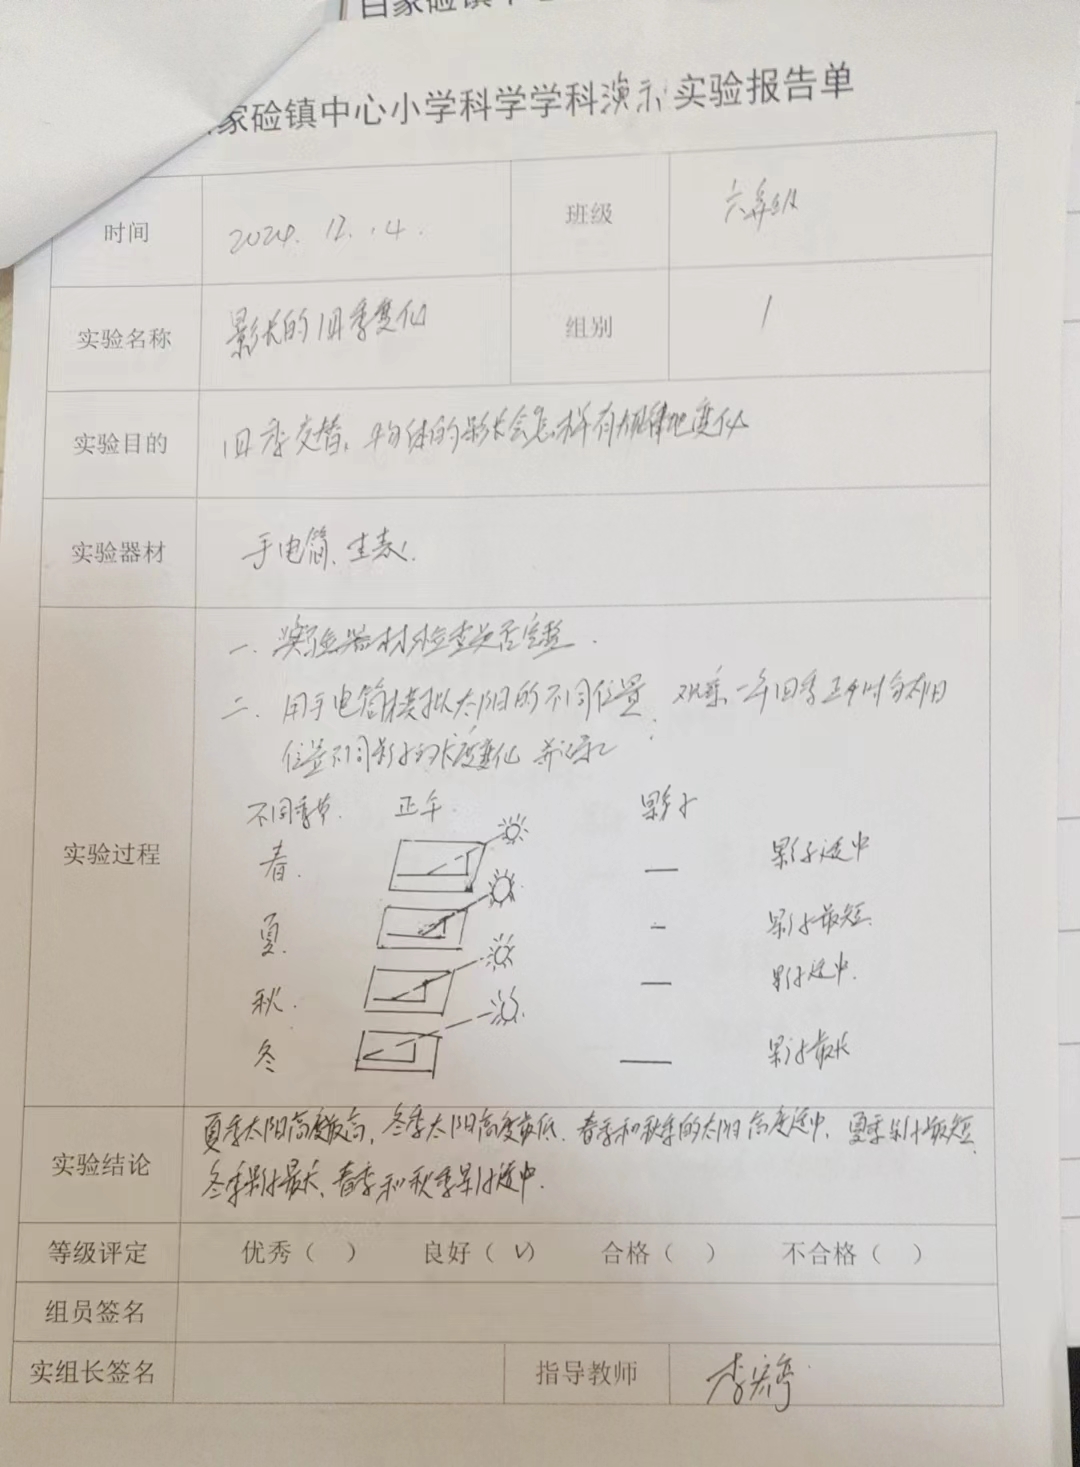 百家硷镇中心
家硷镇中心小学科学学科演示实验报告单
时间 2024.12.4. 班级 六年级
实验名称 影长的四季变化 组别 1
实验目的 四季交替,物体的影长会怎样有规律地变化
实验器材 手电筒、
一、实验器材检查是否完整.
二、用手电筒模拟太阳的不同位置,观察一年四季正午时分太阳
位置不同影子的长度变化 并记录
实验过程
不同季节. 正午. 影子
春. — 影子适中
夏. - 影子最短.
秋. — 影子适中.
冬 — 影子最长
夏季太阳高度最高,冬季太阳高度最低、春季和秋季的太阳高度适中,夏季影子最短,
实验结论
冬季影子最长、春季和秋季影子适中.
等级评定 优秀( ) 良好(√) 合格( ) 不合格( )
组员签名
实组长签名 指导教师 李